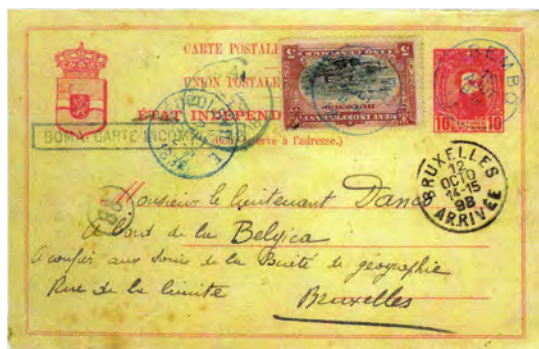 CARTE POSTALE
UNION POSTALE
ÉTAT INDÉPEND
ÉTAT INDÉPENDANT DU CONGO
5
10
10
BOMA CARTE INCOMPLÈTE
réservé à l'adresse.)
BRUXELLES
12
OCTO
14-15
98
ARRIVÉE
Monsieur le lieutenant Danco
A bord de la Belgica
A confier aux soins de la Société de géographie
Rue de la limite
Bruxelles